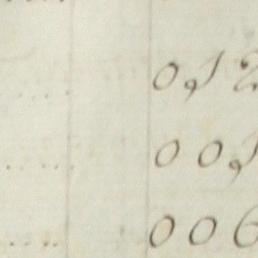 0,12
00,1
006